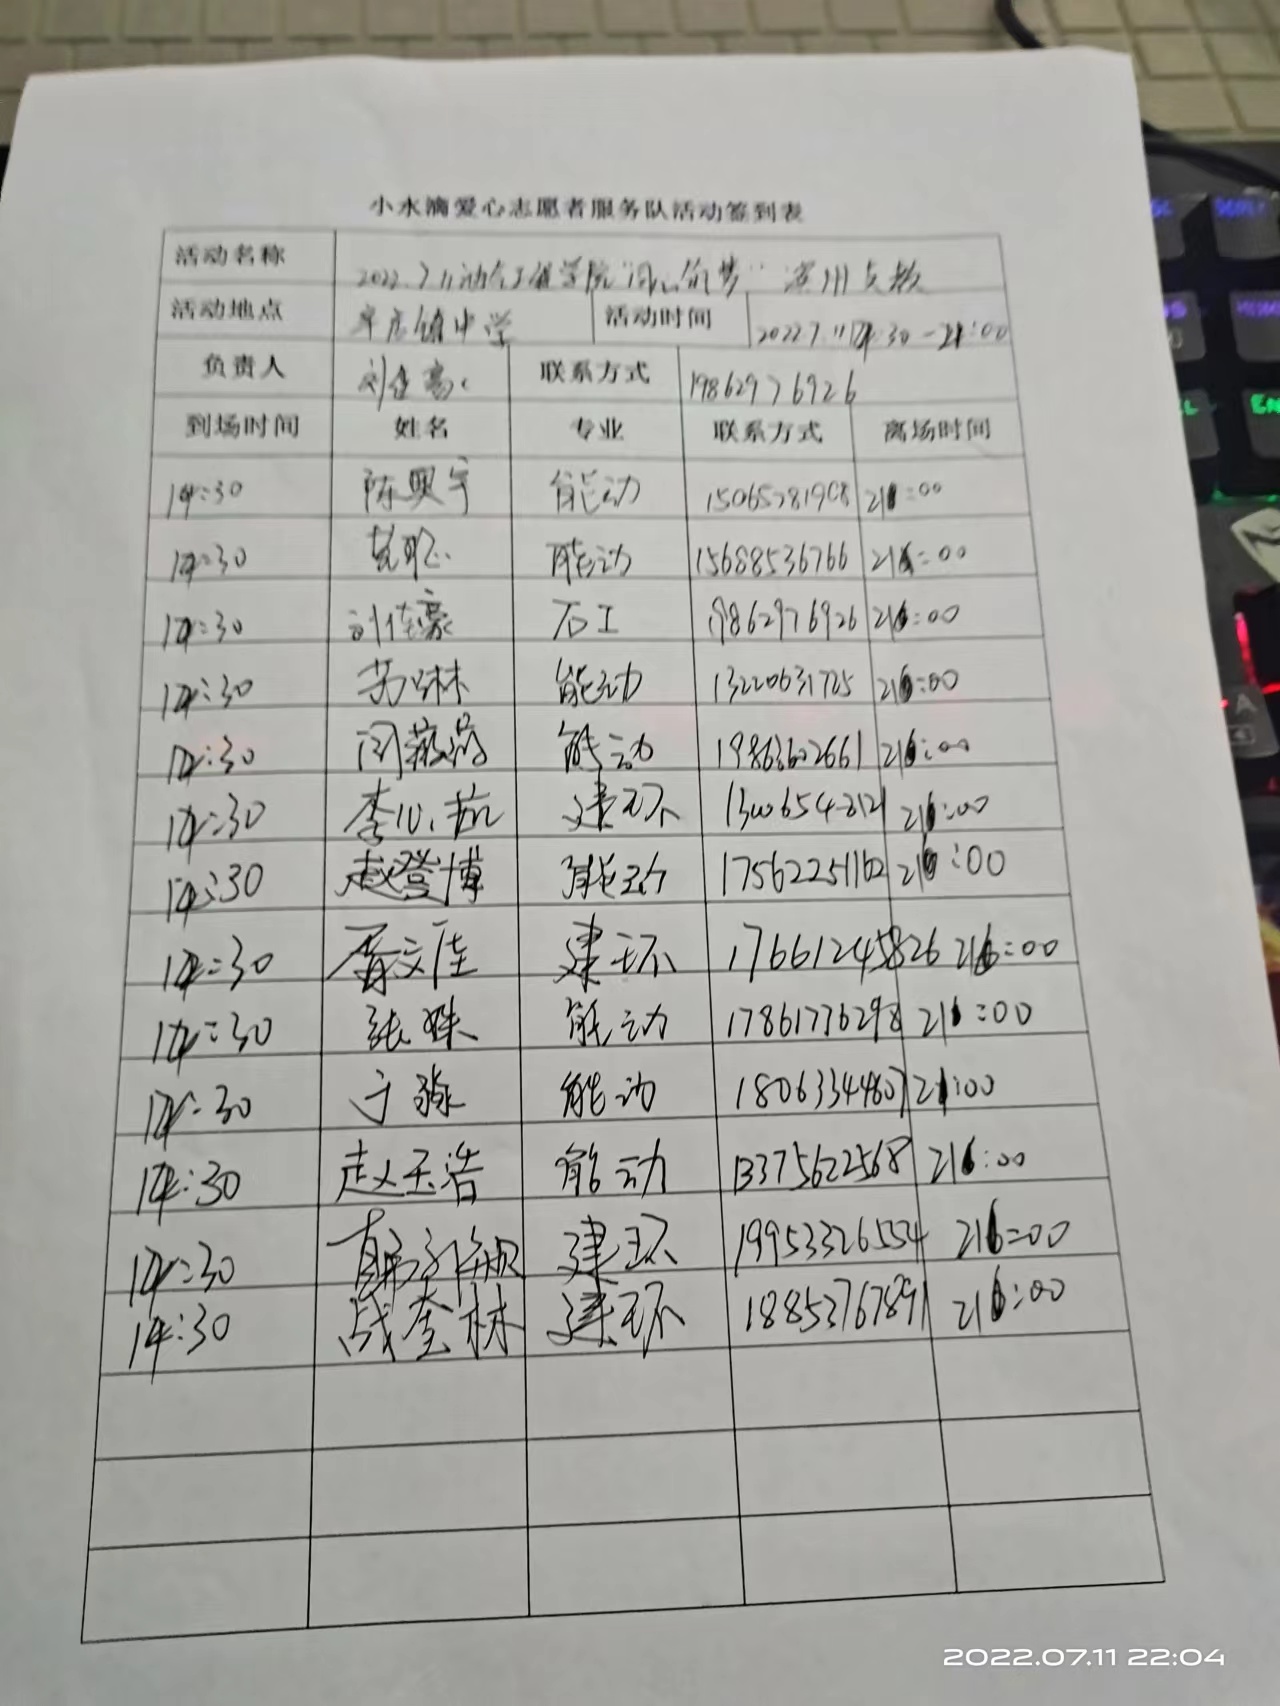 小水滴爱心志愿者服务队活动签到表
活动名称 2022.7.11 学院 滨州支教
活动地点 镇中学 活动时间 2022.7.11 14:30-21:00
负责人 刘佳豪 联系方式 19862976926
到场时间 姓名 专业 联系方式 离场时间
14:30 陈 宇 能动 15065781908 21:00
14:30 能动 15688536766 21:00
14:30 刘佳豪 石工 19862976926 21:00
14:30 苏琳 能动 13220631725 21:00
14:30 闫 能动 19863602661 21:00
14:30 李心航 建环 21:00
14:30 赵登博 能动 17562251162 21:00
14:30 文佳 建环 17661245826 21:00
14:30 张姝 能动 17861776298 21:00
14:30 于淼 能动 18063344807 21:00
14:30 赵玉浩 能动 13375622568 21:00
14:30 建环 19953326554 21:00
14:30 战奎林 建环 18853767891 21:00
2022.07.11 22:04